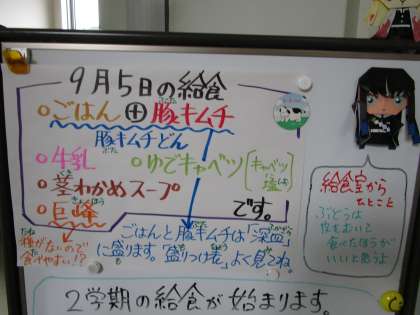 9月5日の給食
○ごはん⊕豚キムチ
ぶた
豚キムチどん
ぶた
○牛乳
○ゆでキャベツ(キャベツ 塩)
しお
○茎わかめスープ
くき
○巨峰
きょほう
です。
種がないので
たね
食べやすい!?
ごはんと豚キムチは「深皿」
に盛ります。"盛りつけ表"よく見てね。
給食室から
ひとこと
ぶどうは
皮をむいて
食べたほうが
いいと思うよ
2学期の給食が始まります。